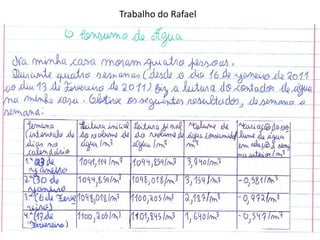 Trabalho do Rafael
O Consumo de Água
Na minha casa moram quatro pessoas.
Durante quatro semanas (desde o dia 16 de janeiro de 2011
ao dia 13 de Fevereiro de 2011) fiz a leitura do contador de água
na minha casa. Obtive os seguintes resultados, de semana a
semana:
Semana (intervalo de dias no calendário) Leitura inicial do volume de água /m³ Leitura final do volume de água /m³ Volume de água consumido /m³ Variação do volume de água em relação à semana anterior /m³
1.ª janeiro 1091,114/m³ 1094,854/m³ 3,740/m³
2.ª 30 de janeiro 1094,854/m³ 1098,018/m³ 3,159/m³ -0,581/m³
3.ª (6 de Fevereiro) 1098,018/m³ 1100,205/m³ 2,187/m³ -0,972/m³
4.ª Fevereiro) 1100,205/m³ 1101,845/m³ 1,640/m³ -0,547/m³